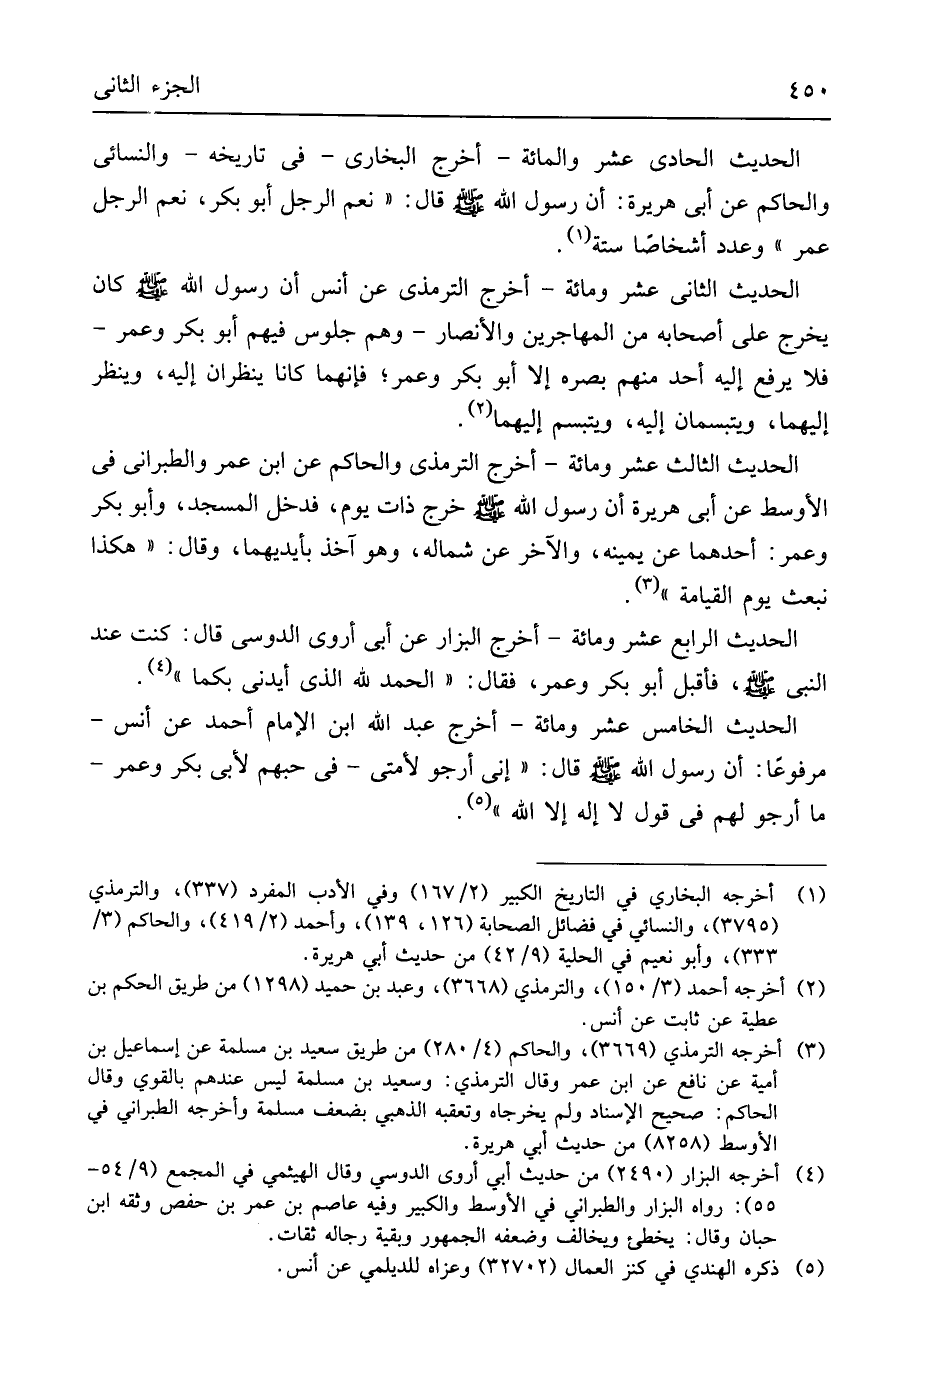 ٤٥٠ الجزء الثانى
الحديث الحادى عشر والمائة - أخرج البخارى - فى تاريخه - والنسائى
والحاكم عن أبى هريرة: أن رسول الله ﷺ قال: « نعم الرجل أبو بكر، نعم الرجل
عمر » وعدد أشخاصًا ستة(١).
الحديث الثانى عشر ومائة - أخرج الترمذى عن أنس أن رسول الله ﷺ كان
يخرج على أصحابه من المهاجرين والأنصار - وهم جلوس فيهم أبو بكر وعمر -
فلا يرفع إليه أحد منهم بصره إلا أبو بكر وعمر؛ فإنهما كانا ينظران إليه، وينظر
إليهما، ويتبسمان إليه، ويتبسم إليهما(٢).
الحديث الثالث عشر ومائة - أخرج الترمذى والحاكم عن ابن عمر والطبرانى فى
الأوسط عن أبى هريرة أن رسول الله ﷺ خرج ذات يوم، فدخل المسجد، وأبو بكر
وعمر: أحدهما عن يمينه، والآخر عن شماله، وهو آخذ بأيديهما، وقال: « هكذا
نبعث يوم القيامة »(٣).
الحديث الرابع عشر ومائة - أخرج البزار عن أبى أروى الدوسى قال: كنت عند
النبى ﷺ، فأقبل أبو بكر وعمر، فقال: « الحمد لله الذى أيدنى بكما »(٤).
الحديث الخامس عشر ومائة - أخرج عبد الله ابن الإمام أحمد عن أنس -
مرفوعًا: أن رسول الله ﷺ قال: « إنى أرجو لأمتى - فى حبهم لأبى بكر وعمر -
ما أرجو لهم فى قول لا إله إلا الله »(٥).
(١) أخرجه البخاري في التاريخ الكبير (١٦٧/٢) وفي الأدب المفرد (٣٣٧)، والترمذي
(٣٧٩٥)، والنسائي في فضائل الصحابة (١٢٦، ١٣٩)، وأحمد (٤١٩/٢)، والحاكم (٣/
٣٣٣)، وأبو نعيم في الحلية (٤٢/٩) من حديث أبي هريرة.
(٢) أخرجه أحمد (١٥٠/٣)، والترمذي (٣٦٦٨)، وعبد بن حميد (١٢٩٨) من طريق الحكم بن
عطية عن ثابت عن أنس.
(٣) أخرجه الترمذي (٣٦٦٩)، والحاكم (٢٨٠/٤) من طريق سعيد بن مسلمة عن إسماعيل بن
أمية عن نافع عن ابن عمر وقال الترمذي: وسعيد بن مسلمة ليس عندهم بالقوي وقال
الحاكم: صحيح الإسناد ولم يخرجاه وتعقبه الذهبي بضعف مسلمة وأخرجه الطبراني في
الأوسط (٨٢٥٨) من حديث أبي هريرة.
(٤) أخرجه البزار (٢٤٩٠) من حديث أبي أروى الدوسي وقال الهيثمي في المجمع (٩/ ٥٤-
٥٥): رواه البزار والطبراني في الأوسط والكبير وفيه عاصم بن عمر بن حفص وثقه ابن
حبان وقال: يخطئ ويخالف وضعفه الجمهور وبقية رجاله ثقات.
(٥) ذكره الهندي في كنز العمال (٣٢٧٠٢) وعزاه للديلمي عن أنس.